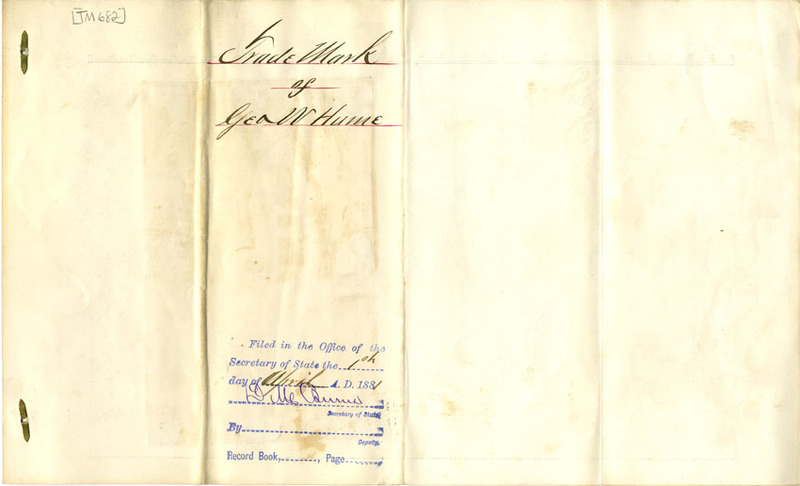 [TM 682]
Trade Mark
of
Geo W Hume
Filed in the Office of the
Secretary of State the 1st
day of April A. D. 1881
Secretary of State
By
Deputy.
Record Book, , Page